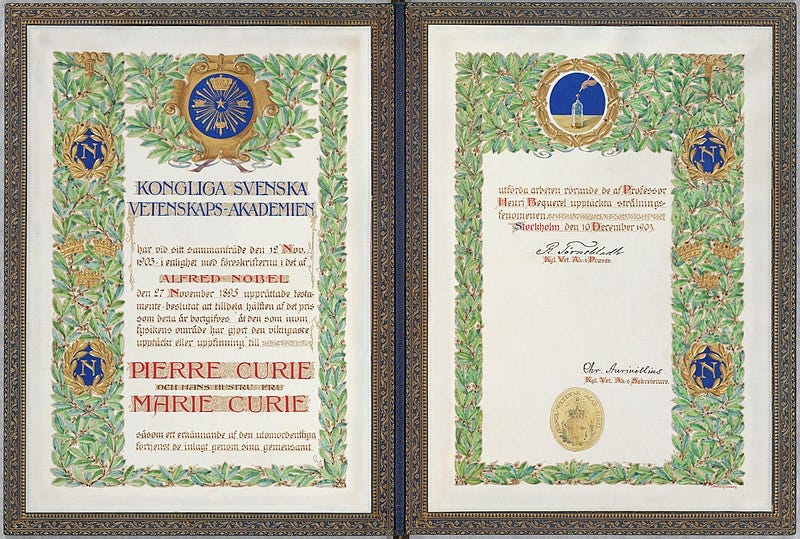 KONGLIGA SVENSKA
VETENSKAPS-AKADEMIEN
har vid sitt sammanträde den 12 Nov.
1903 i enlighet med föreskrifterna i det af
ALFRED NOBEL
den 27 November 1895 upprättade testa-
mente beslutat att tilldela hälften af det pris
som detta år bortgifves åt den som inom
fysikens område har gjort den viktigaste
upptäckt eller uppfinning till
PIERRE CURIE
OCH HANS HUSTRU FRU
MARIE CURIE
såsom ett erkännande af den utomordentliga
förtjenst de inlagt genom sina gemensamt
N
N
utförda arbeten rörande de af Professor
Henri Bequerel upptäckta strålnings-
fenomenen
Stockholm den 10 December 1903
R Törnebladh
Kgl. Vet. Ak:s Præses.
Chr. Aurivillius
Kgl. Vet. Ak:s Sekreterare.
N
N